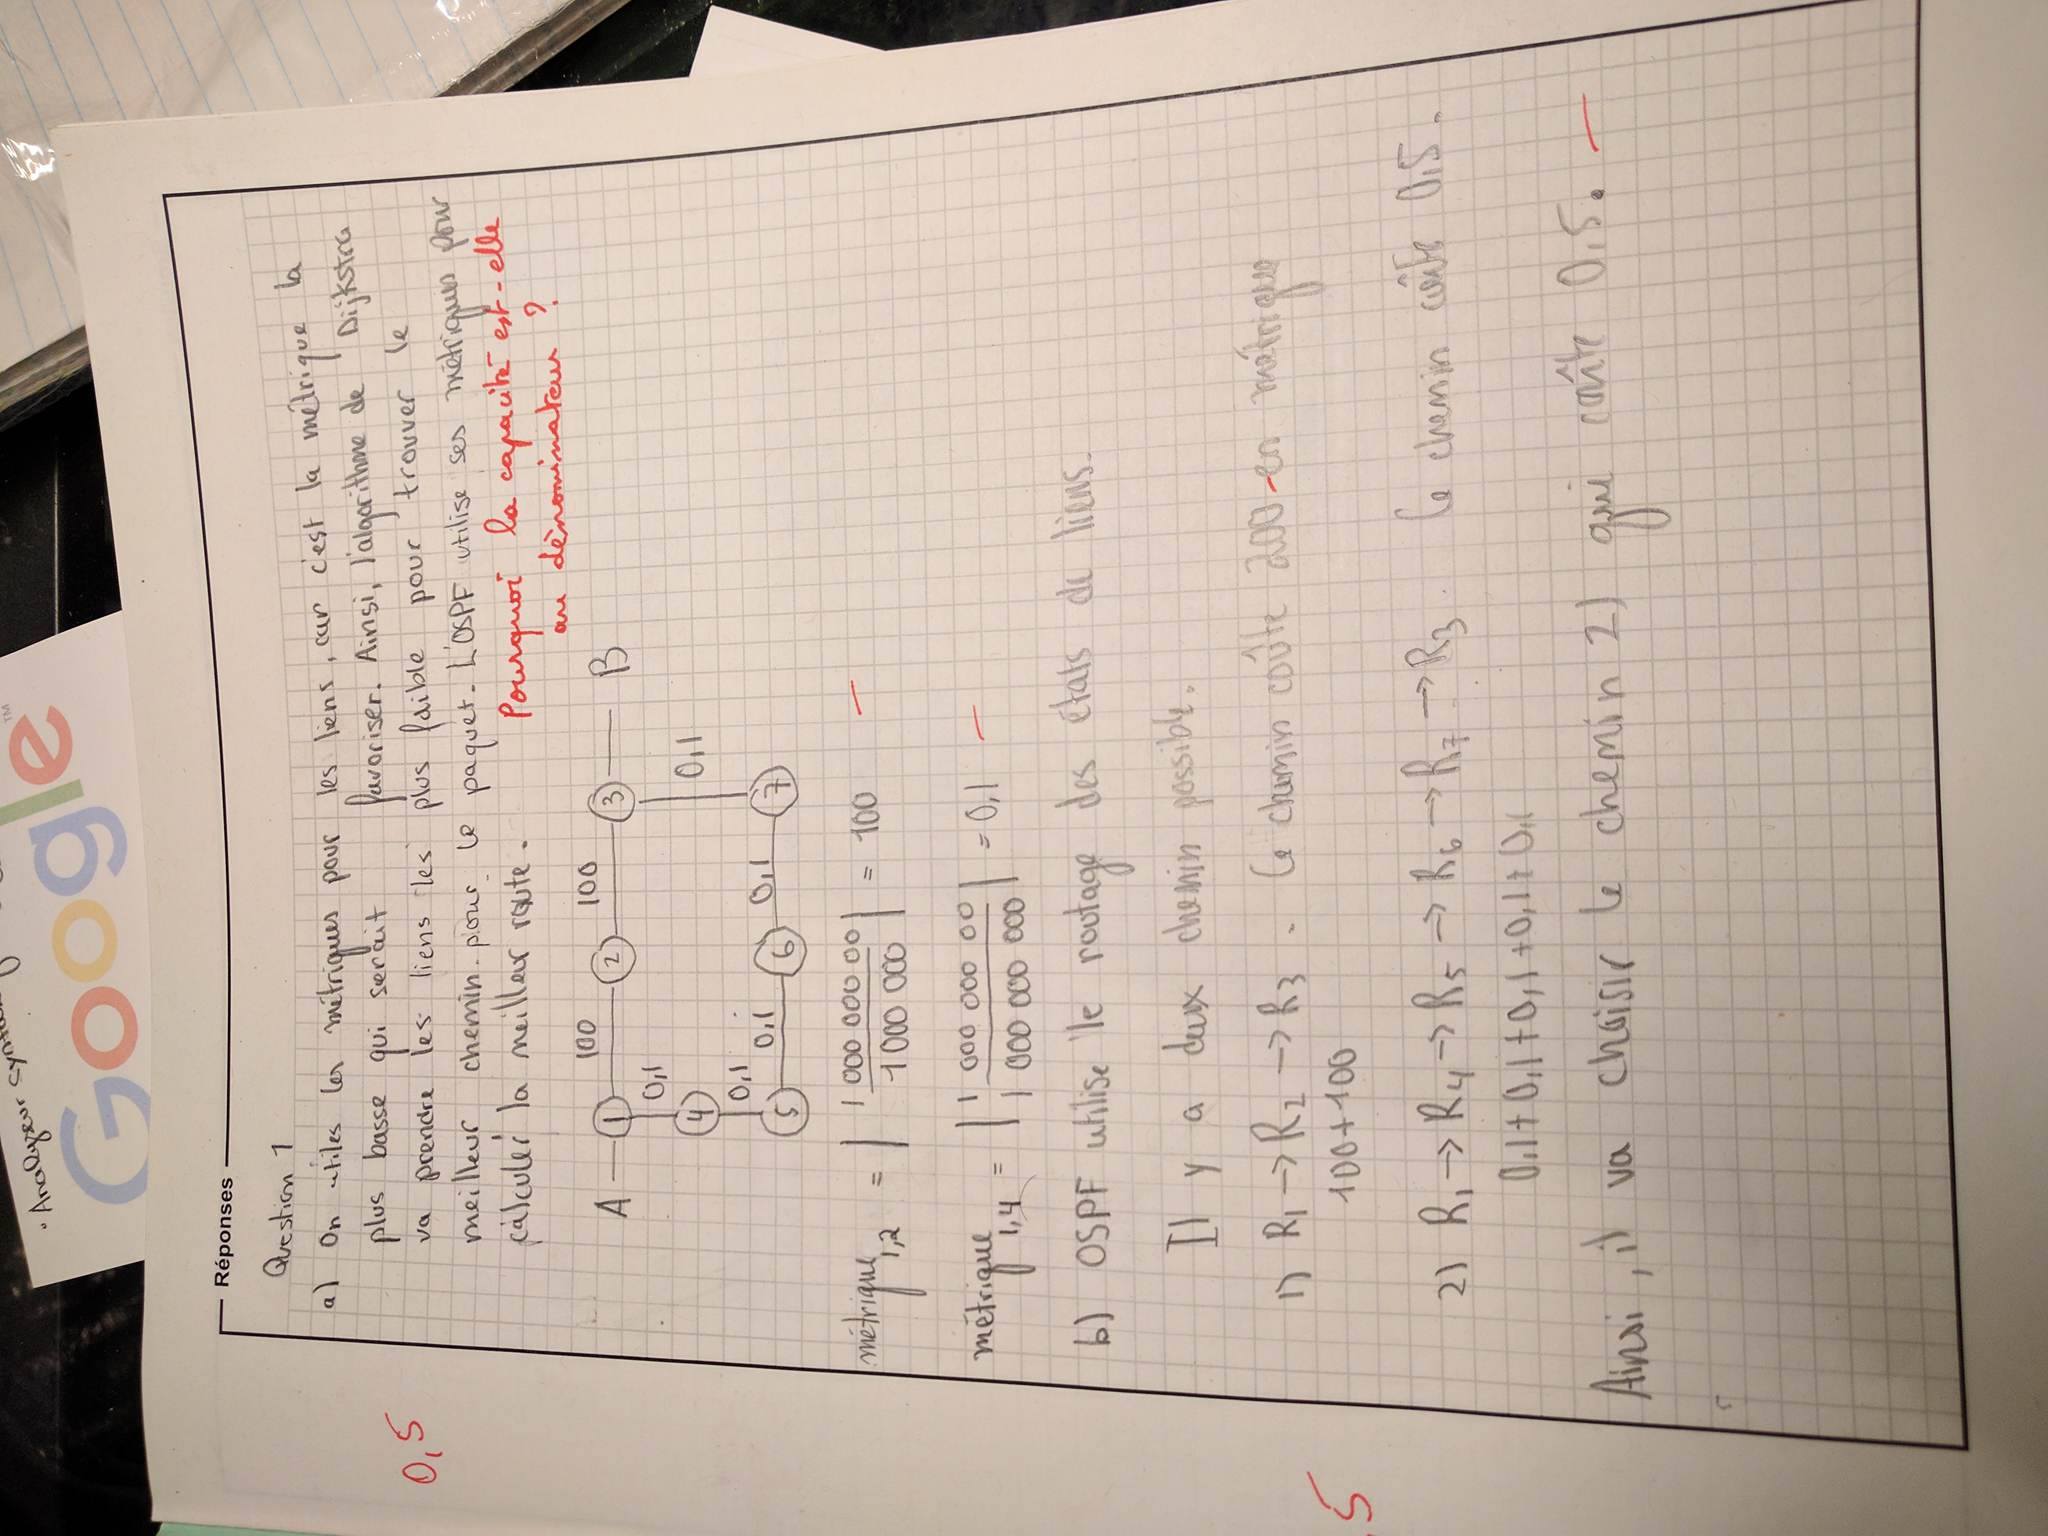 "Analyseur
Google™
Réponses
Question 1
a) On utiles les métriques pour les liens, car c'est la métrique la
plus basse qui serait favoriser. Ainsi, l'algorithme de Dijkstra
0,5
va prendre les liens les plus faible pour trouver le
meilleur chemin pour le paquet. L'OSPF utilise ses métriques pour
calculer la meilleur route. Pourquoi la capacité est-elle
au dénominateur ?
A 1 100 2 100 3 B
0,1
4 0,1
0,1
5 0,1 6 0,1 7
métrique 1,2 = | 1 000 000 00 / 1 000 000 | = 100 –
métrique 1,4 = | 1 000 000 00 / 1 000 000 000 | = 0,1 –
b) OSPF utilise le routage des états de liens.
Il y a deux chemin possible.
1) R1 → R2 → R3 . Ce chemin coûte 200 en métrique
100+100
5
2) R1 → R4 → R5 → R6 → R7 → R3 . Ce chemin coûte 0,5.
0,1 + 0,1 + 0,1 + 0,1 + 0,1
Ainsi, il va choisir le chemin 2) qui coûte 0,5. –